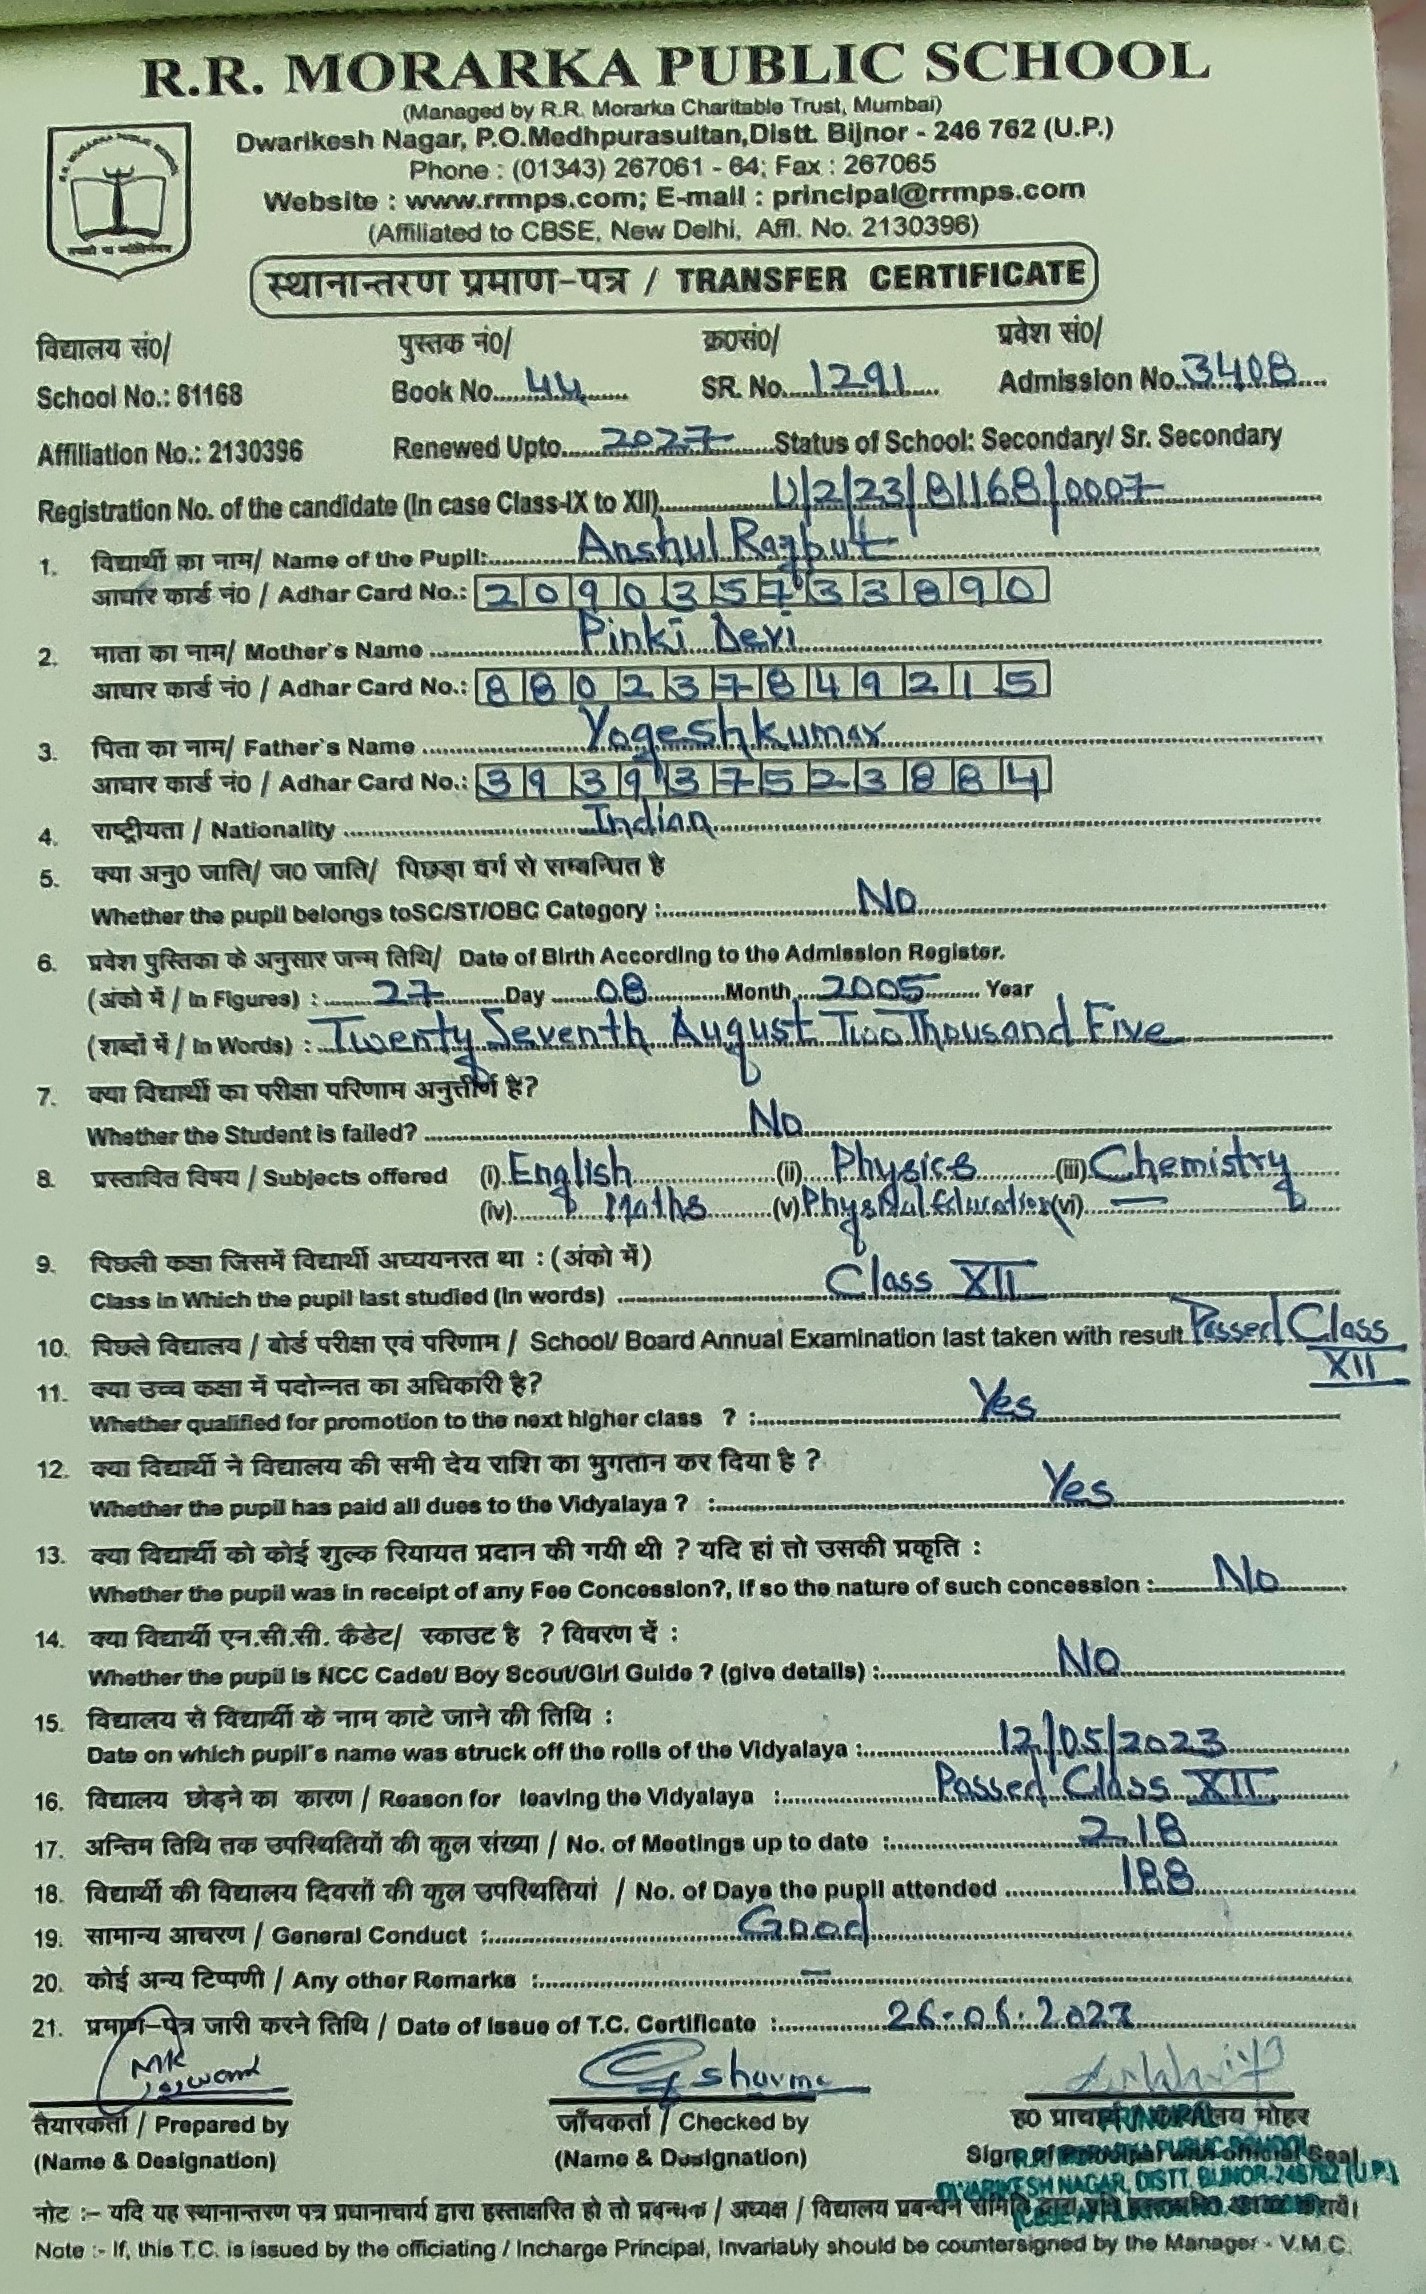 R.R. MORARKA PUBLIC SCHOOL
(Managed by R.R. Morarka Charitable Trust, Mumbai)
Dwarikesh Nagar, P.O.Medhpurasultan,Distt. Bijnor - 246 762 (U.P.)
Phone : (01343) 267061 - 64; Fax : 267065
Website : www.rrmps.com; E-mail : principal@rrmps.com
(Affiliated to CBSE, New Delhi, Affl. No. 2130396)
R.R. MORARKA PUBLIC SCHOOL
स्थानान्तरण प्रमाण-पत्र / TRANSFER CERTIFICATE
विद्यालय सं0/ पुस्तक नं0/ क्र0सं0/ प्रवेश सं0/
School No.: 81168 Book No. 44 SR. No. 1291 Admission No. 3408
Affiliation No.: 2130396 Renewed Upto 2027 Status of School: Secondary/ Sr. Secondary
Registration No. of the candidate (In case Class-IX to XII) U/2/23/81168/0007
1. विद्यार्थी का नाम/ Name of the Pupil: Anshul Rajput
आधार कार्ड नं0 / Adhar Card No.: 209035733890
2. माता का नाम/ Mother's Name Pinki Devi
आधार कार्ड नं0 / Adhar Card No.: 880237849215
3. पिता का नाम/ Father's Name Yogesh kumar
आधार कार्ड नं0 / Adhar Card No.: 393937523884
4. राष्ट्रीयता / Nationality Indian
5. क्या अनु0 जाति/ ज0 जाति/ पिछड़ा वर्ग से सम्बन्धित है
Whether the pupil belongs toSC/ST/OBC Category : No
6. प्रवेश पुस्तिका के अनुसार जन्म तिथि/ Date of Birth According to the Admission Register.
(अंको में / In Figures) : 27 Day 08 Month 2005 Year
(शब्दों में / In Words) : Twenty Seventh August Two Thousand Five
7. क्या विद्यार्थी का परीक्षा परिणाम अनुत्तीर्ण है?
Whether the Student is failed? No
8. प्रस्तावित विषय / Subjects offered (i) English (ii) Physics (iii) Chemistry
(iv) Maths (v) Physical Education (vi) —
9. पिछली कक्षा जिसमें विद्यार्थी अध्ययनरत था : (अंको में)
Class in Which the pupil last studied (in words) Class XII
10. पिछले विद्यालय / बोर्ड परीक्षा एवं परिणाम / School/ Board Annual Examination last taken with result Passed Class
XII
11. क्या उच्च कक्षा में पदोन्नत का अधिकारी है?
Whether qualified for promotion to the next higher class ? : Yes
12. क्या विद्यार्थी ने विद्यालय की सभी देय राशि का भुगतान कर दिया है ?
Whether the pupil has paid all dues to the Vidyalaya ? : Yes
13. क्या विद्यार्थी को कोई शुल्क रियायत प्रदान की गयी थी ? यदि हां तो उसकी प्रकृति :
Whether the pupil was in receipt of any Fee Concession?, if so the nature of such concession : No
14. क्या विद्यार्थी एन.सी.सी. कैडेट/ स्काउट है ? विवरण दें :
Whether the pupil is NCC Cadet/ Boy Scout/Girl Guide ? (give details) : No
15. विद्यालय से विद्यार्थी के नाम काटे जाने की तिथि :
Date on which pupil's name was struck off the rolls of the Vidyalaya : 12/05/2023
16. विद्यालय छोड़ने का कारण / Reason for leaving the Vidyalaya : Passed Class XII
17. अन्तिम तिथि तक उपस्थितियों की कुल संख्या / No. of Meetings up to date : 218
18. विद्यार्थी की विद्यालय दिवसों की कुल उपस्थितियां / No. of Days the pupil attended 188
19. सामान्य आचरण / General Conduct : Good
20. कोई अन्य टिप्पणी / Any other Remarks : —
21. प्रमाण-पत्र जारी करने तिथि / Date of issue of T.C. Certificate :
MK
Gsharma
तैयारकर्ता / Prepared by जाँचकर्ता / Checked by ह0 प्राचार्य / कार्यालय मोहर
(Name & Designation) (Name & Designation) Sign. of Principal with official Seal
PRINCIPAL
R.R. MORARKA PUBLIC SCHOOL
DWARIKESH NAGAR, DISTT. BIJNOR-246762 (U.P.)
नोट :- यदि यह स्थानान्तरण पत्र प्रधानाचार्य द्वारा हस्ताक्षरित हो तो प्रबन्धक / अध्यक्ष / विद्यालय प्रबन्धन समिति द्वारा
Note :- If, this T.C. is issued by the officiating / Incharge Principal, Invariably should be countersigned by the Manager - V.M.C.